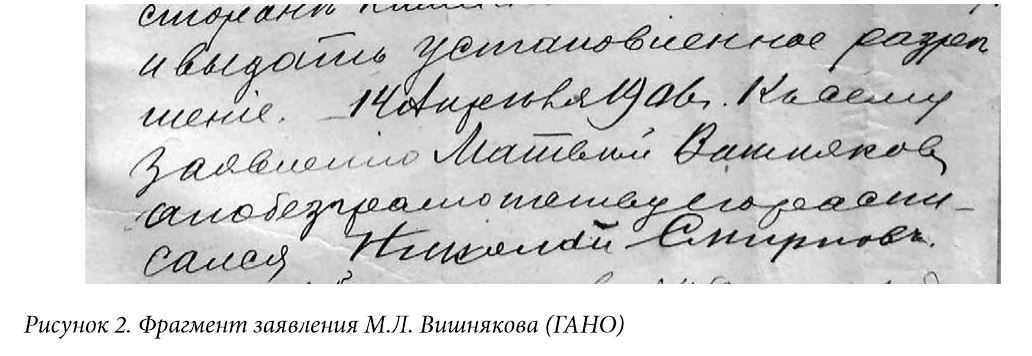 сторонъ
и выдать установленное разрѣ
шеніе. 14 Апрѣля 1906 г. Къ сему
Заявленію Матвѣй Вишняковъ
а по безграмотству его распи-
сался Николай Смирновъ.
Рисунок 2. Фрагмент заявления М.Л. Вишнякова (ГАНО)